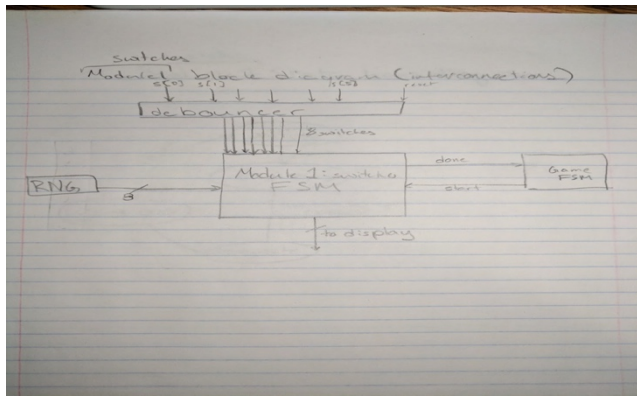 switches
Module 1 block diagram (interconnections)
s[0] s[1]
debouncer
8 switches
Module 1: switches
FSM
RNG
8
done
start
Game
FSM
to display